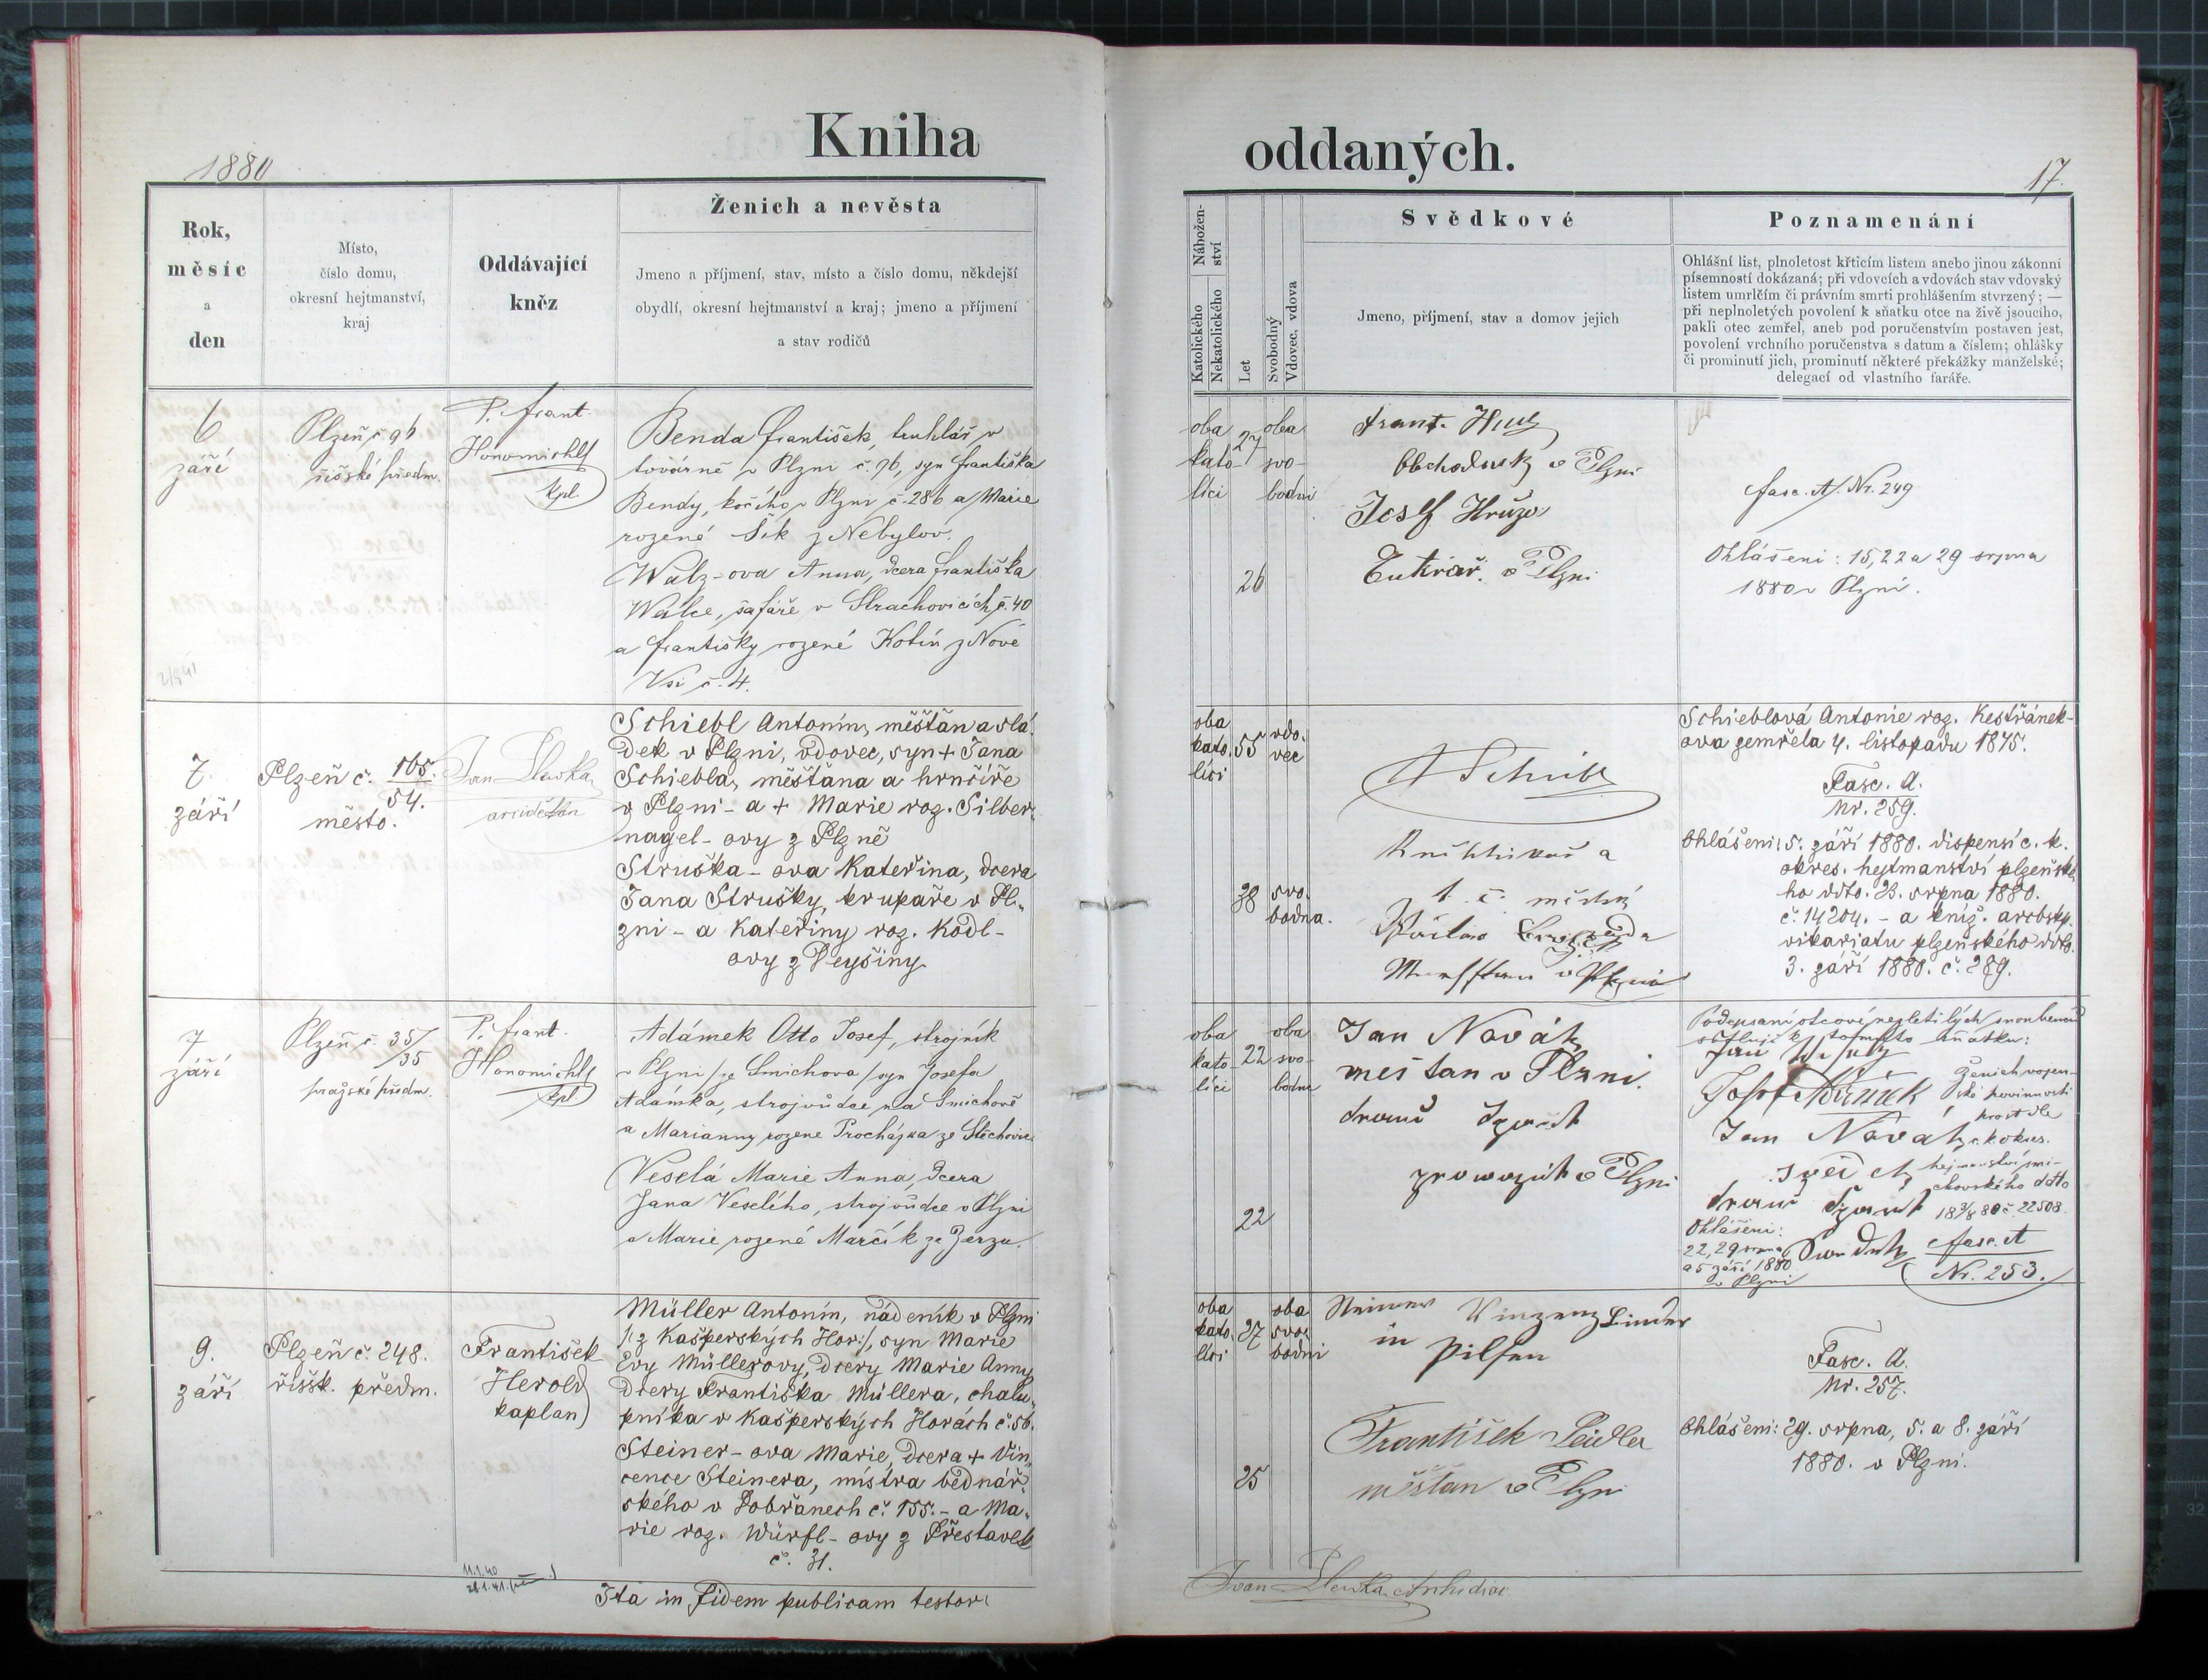 Kniha oddaných.
1880
17.
Rok,
měsíc
a
den
Místo,
číslo domu,
okresní hejtmanství,
kraj
Oddávající
kněz
Ženich a nevěsta
Jmeno a příjmení, stav, místo a číslo domu, někdejší
obydlí, okresní hejtmanství a kraj; jmeno a příjmení
a stav rodičů
Nábožen-
ství
Katolického
Nekatolického
Let
Svobodný
Vdovec, vdova
Svědkové
Jmeno, příjmení, stav a domov jejich
Poznamenání
Ohlášní list, plnoletost křticím listem anebo jinou zákonní
písemností dokázaná; při vdovcích a vdovách stav vdovský
listem umrlčím či právním smrti prohlášením stvrzený; —
při neplnoletých povolení k sňatku otce na živě jsoucího,
pakli otec zemřel, aneb pod poručenstvím postaven jest,
povolení vrchního poručenstva s datum a číslem; ohlášky
či prominutí jich, prominutí některé překážky manželské;
delegací od vlastního faráře.
6
září
Plzeň č 96
říšské předm.
P. Frant.
Honomichl
kpl.
Benda František, truhlář v
továrně v Plzni č. 96, syn Františka
Bendy, kočího v Plzni č. 286 a Marie
rozené Šik z Nebylov.
Walz-ova Anna, dcera Františka
Walce, šafáře v Strachovicích č. 40
a Františky rozené Kotín z Nové
Vsi č. 4.
oba
kato-
líci
27
oba
svo-
bodni
26
Frant.
Obchodník v Plzni
Josef Hrůza
v Plzni
fasc. A. Nr. 249
Ohlášeni: 15, 22 a 29 srpna
1880 v Plzni.
7.
září
Plzeň č. 105./54.
město.
Jan Hlevka
arcidĕkan
Schiebl Antonín, měšťan a slá-
dek v Plzni, vdovec, syn + Jana
Schiebla, měšťana a hrnčíře
v Plzni - a + Marie roz. Silber-
nagel-ovy z Plzně
Struška-ova Kateřina, dcera
Jana Strušky, krupaře v Pl-
zni - a Kateřiny roz. Kodl-
ovy z Deyšiny
oba
kato-
líci
55
vdo-
vec
38
svo-
bodna.
A Schiebl
Knihtiskař a
Václav
v Plzni
Schieblová Antonie roz. Kestřánek-
ova zemřela 4. listopadu 1875.
Fasc. A.
Nr. 259.
Ohlášeni: 5. září 1880. dispensí c. k.
okres. hejtmanství plzeňské-
ho ddto. 23. srpna 1880.
č. 14204. - a kníž. arcbskp.
vikariatu plzeňského ddto.
3. září 1880. č. 289.
7
září
Plzeň č. 35/35
pražské předm.
P. Frant.
Honomichl
kpl.
Adámek Otto Josef, strojník
v Plzni /ze Smichova/ syn Josefa
Adámka, strojvůdce na Smíchově
a Marianny rozene Procházka ze Štěchovic
Veselá Marie Anna, dcera
Jana Veselého, strojvůdce v Plzni
a Marie rozené Marčík ze Zerzu.
oba
kato-
líci
22
oba
svo-
bodni
22
Jan Novák
mešťan v Plzni.
v Plzni
Podepsaní otcové nezletilých snoubenců
svolují k tomuto sňatku:
Jan Veselý
Josef Adámek
Jan Novák
Svědek
Svědek
Ženich vojen-
ské povinnosti
prost dle
c. k. okres.
hejmanství smi-
chovského ddto
18 3/8 80 č. 22508.
Ohlášeni:
22, 29 srpna
a 5 září 1880
v Plzni
fasc. A
Nr. 253.
9.
září
Plzeň č. 248.
říšsk. předm.
František
Herold
kaplan
Müller Antonín, nádeník v Plzni
/: z Kašperských Hor :/, syn Marie
Evy Müllerovy, dcery Marie Anny,
dcery Františka Müllera, chalu-
pníka v Kašperských Horách č. 56.
Steiner-ova Marie, dcera + Vin-
cence Steinera, místra bednář-
ského v Dobřanech č. 155. - a Ma-
rie roz. Würfl-ovy z Přestavlk
č. 31.
oba
kato-
líci
27
oba
svo-
bodni
25
Vinzenz
in
Pilsen
František Seidler
měšťan v Plzni
Fasc. A.
Nr. 257.
Ohlášeni: 29. srpna, 5. a 8. září
1880. v Plzni.
11.1.40
Ita in fidem publicam testor:
Jan Hlevka Archidiac.